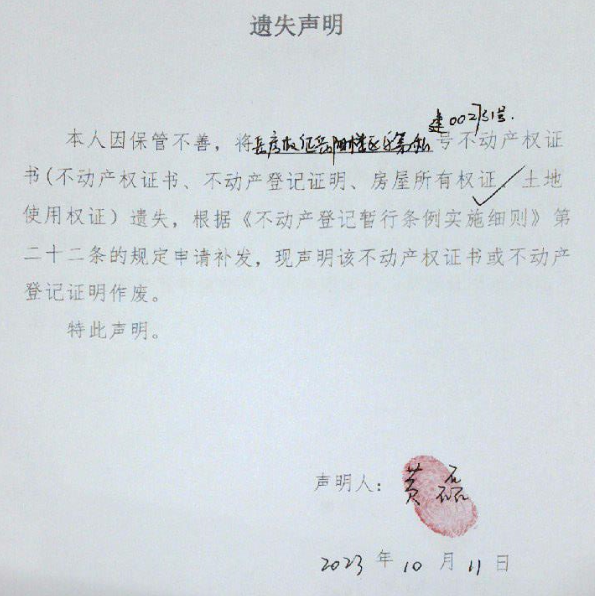 遗失声明
建00231号.
本人因保管不善，将岳房权证岳阳楼区字第私号不动产权证
书(不动产权证书、不动产登记证明、房屋所有权证、土地
使用权证）遗失，根据《不动产登记暂行条例实施细则》第
二十二条的规定申请补发，现声明该不动产权证书或不动产
登记证明作废。
特此声明。
声明人：黄磊
2023年10月11日